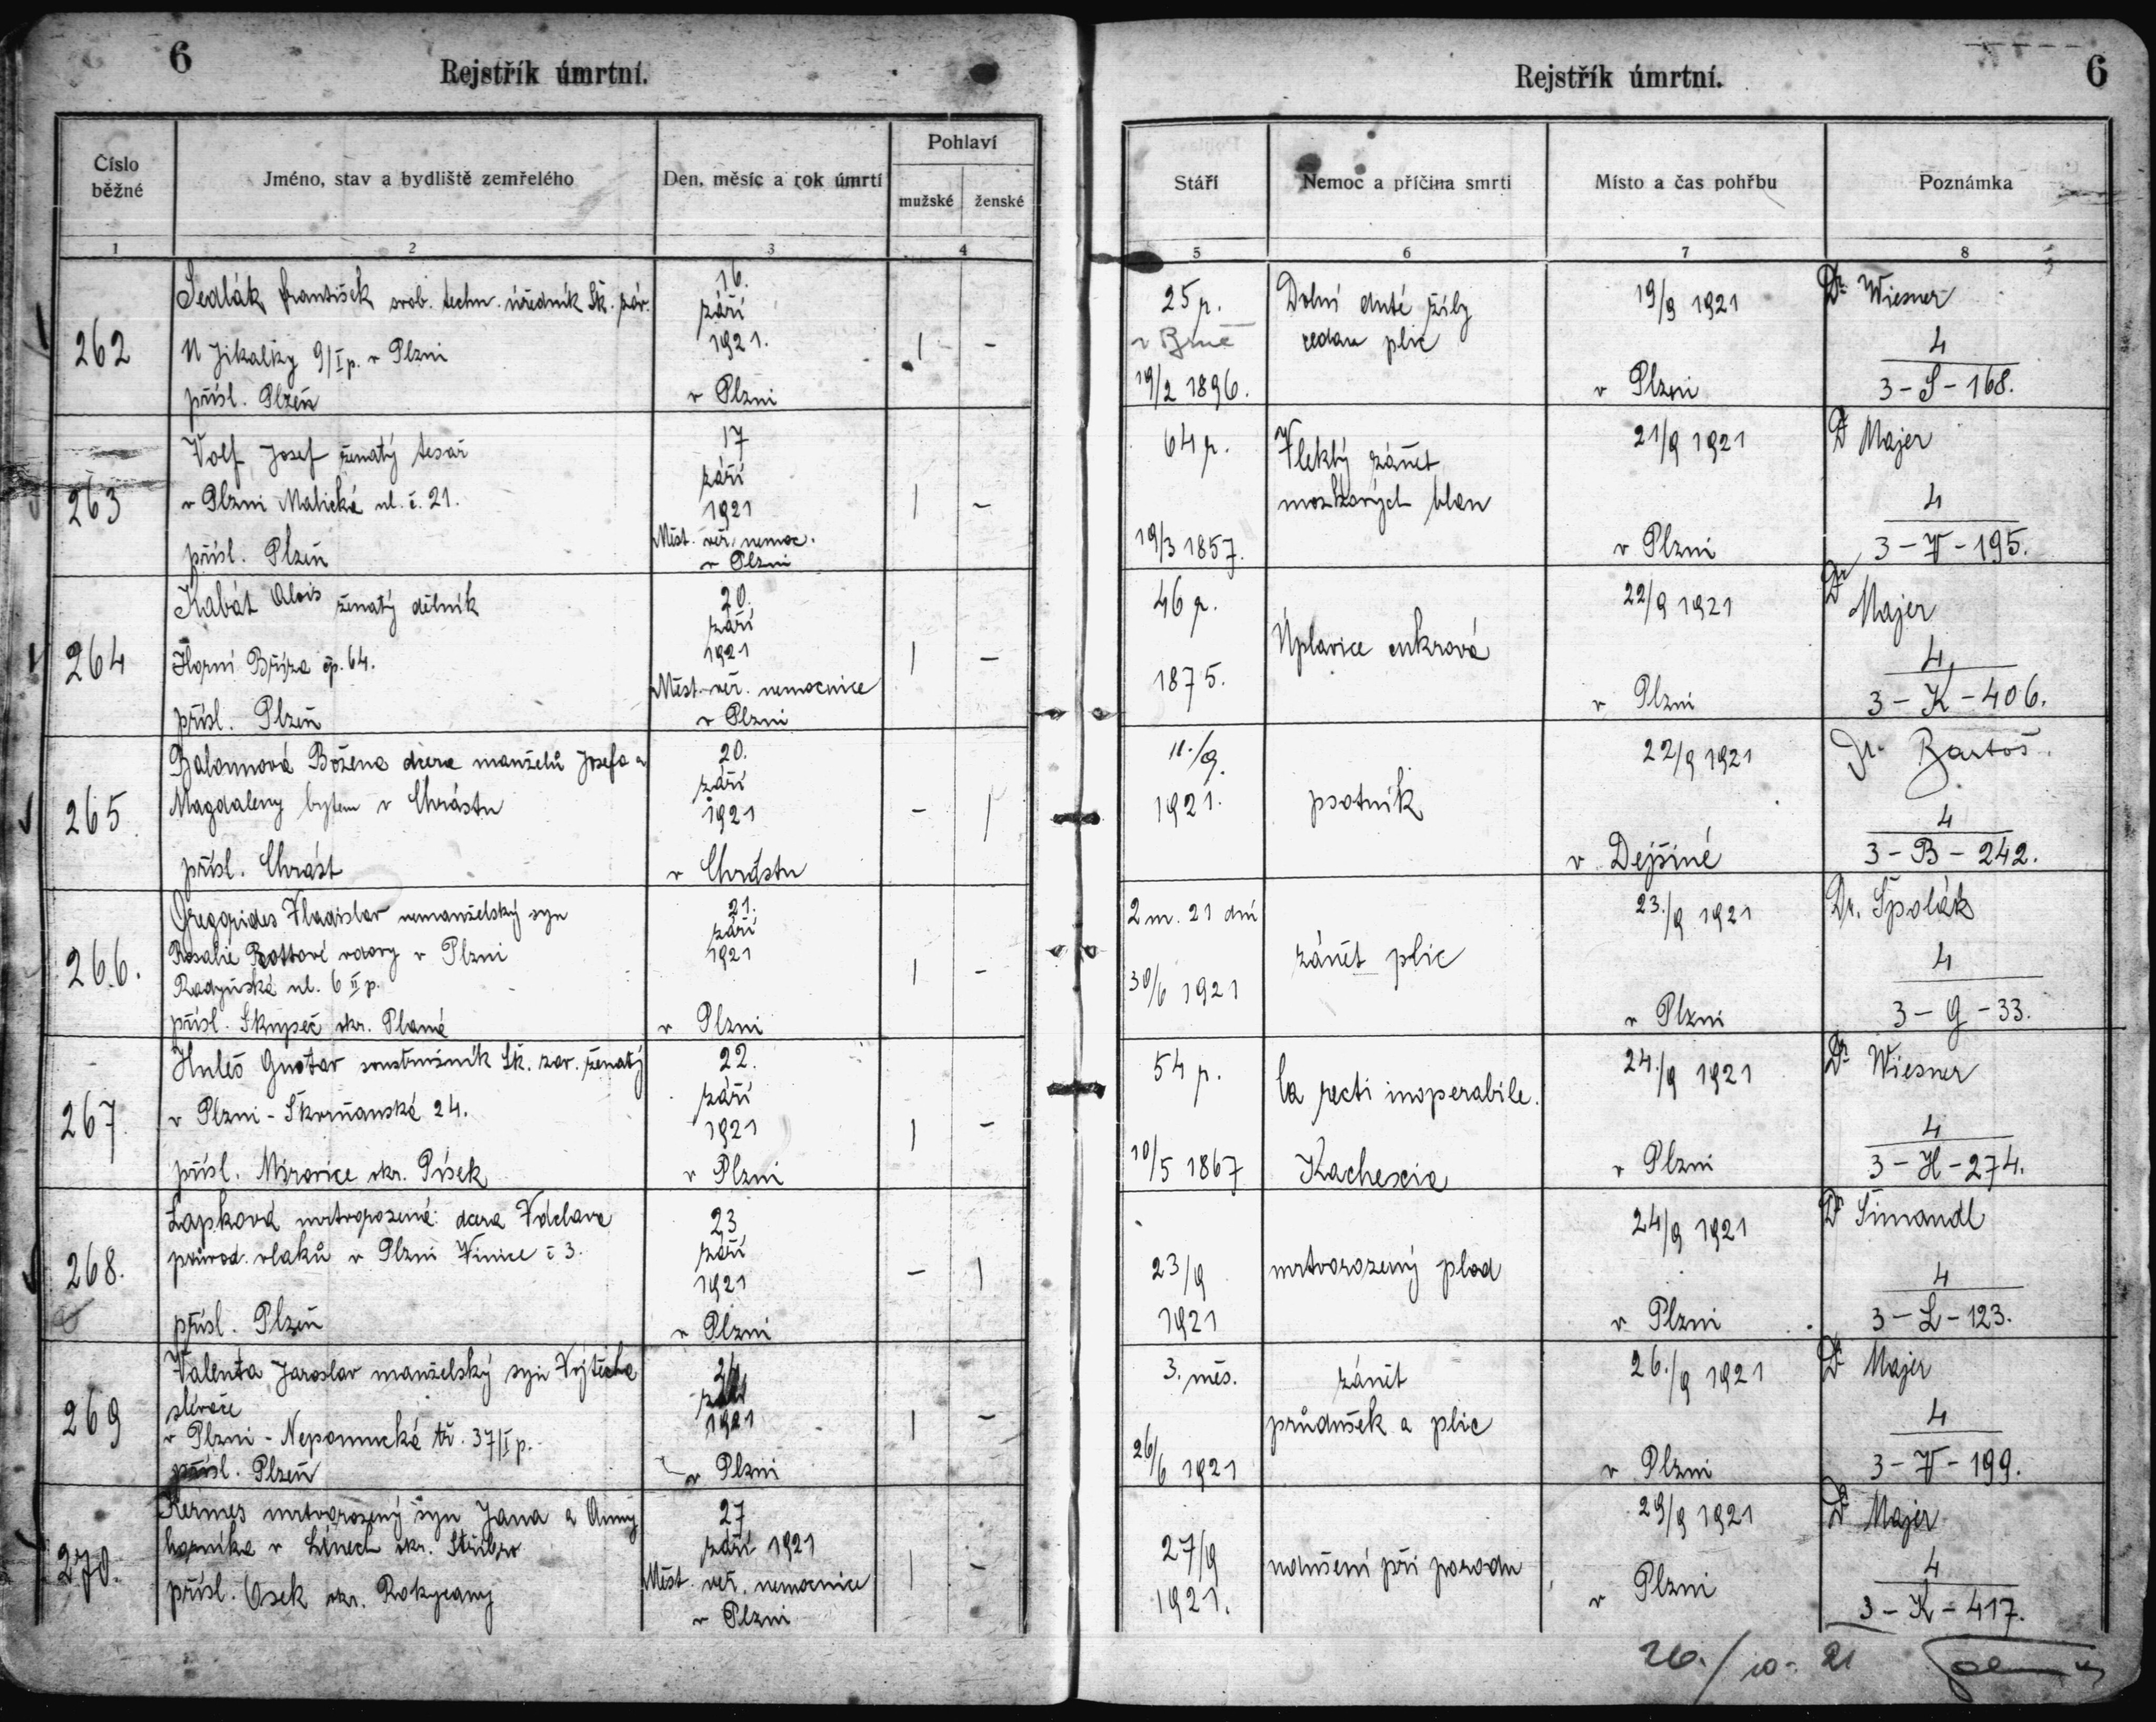 6
Rejstřík úmrtní.
Číslo běžné
Jméno, stav a bydliště zemřelého
Den, měsíc a rok úmrtí
Pohlaví
mužské
ženské
1
2
3
4
262
Sedlák František svob. techn. úředník Šk. záv.
U Jikalky 9/I p. v Plzni
přísl. Plzeň
16.
září
1921.
v Plzni
263
Volf Josef ženatý tesař
v Plzni Malická ul. č. 21.
přísl. Plzeň
17
září
1921
Měst. veř. nemoc.
v Plzni
264
Kabát Alois ženatý dělník
Horní Bříza čp. 64.
přísl. Plzeň
20.
září
1921
Měst. veř. nemocnice
v Plzni
265
Božena dcera manželů Josefa a
Magdaleny bytem v Chrástu
přísl. Chrást
20.
září
1921
v Chrástu
266.
Gregorides Vladislav nemanželský syn
Rosalie Rottové vdovy v Plzni
Radyňská ul. 6 II p.
přísl. Skupeč okr. Planá
21.
září
1921
v Plzni
267
Huleš Gustav soustružník Šk. zav. ženatý
v Plzni - Skvrňanská 24.
přísl. Mirovice okr. Písek
22.
září
1921
v Plzni
268.
Lapková mrtvorozená dcera Václava
průvod. vlaků v Plzni Vinice č 3.
přísl. Plzeň
23
září
1921
v Plzni
269
Valenta Jaroslav manželský syn Vojtěcha
slévače
v Plzni - Nepomucká tř. 37/I p.
přísl. Plzeň
24.
září
1921
v Plzni
270.
Kermes mrtvorozený syn Jana a Anny
horníka v Línech okr. Stříbro
přísl. Osek okr. Rokycany
27
září 1921
Měst. veř. nemocnice
v Plzni
Rejstřík úmrtní.
6
Stáří
Nemoc a příčina smrti
Místo a čas pohřbu
Poznámka
5
6
7
8
25 r.
v Brně
19/2 1896.
Dolní duté žíly
plic
19/9 1921
v Plzni
Dr Wiesner
4
3 - S - 168.
64 r.
19/3 1857.
Vleklý zánět
mozkových blan
21/9 1921
v Plzni
Dr Majer
4
3 - V - 195.
46 r.
1875.
Úplavice cukrová
22/9 1921
v Plzni
Dr Majer
4
3 - K - 406.
11./9.
1921.
psotník
22/9 1921
v Dejšině
Dr. Bartoš.
4
3 - B - 242.
2 m. 21 dní
30/6 1921
zánět plic
23./9 1921
v Plzni
Dr. Špolák
4
3 - G - 33.
54 r.
10/5 1867
Ca recti inoperabile.
Kachexia
24./9 1921
v Plzni
Dr Wiesner
4
3 - H - 274.
23/9
1921
mrtvorozený plod
24/9 1921
v Plzni
Dr Šimandl
4
3 - L - 123.
3. měs.
26/6 1921
zánět
průdušek a plic
26./9 1921
v Plzni
Dr Majer
4
3 - V - 199.
27/9
1921.
udušení při porodu
29/9 1921
v Plzni
Dr Majer
4
3 - K - 417.
26./10. 21